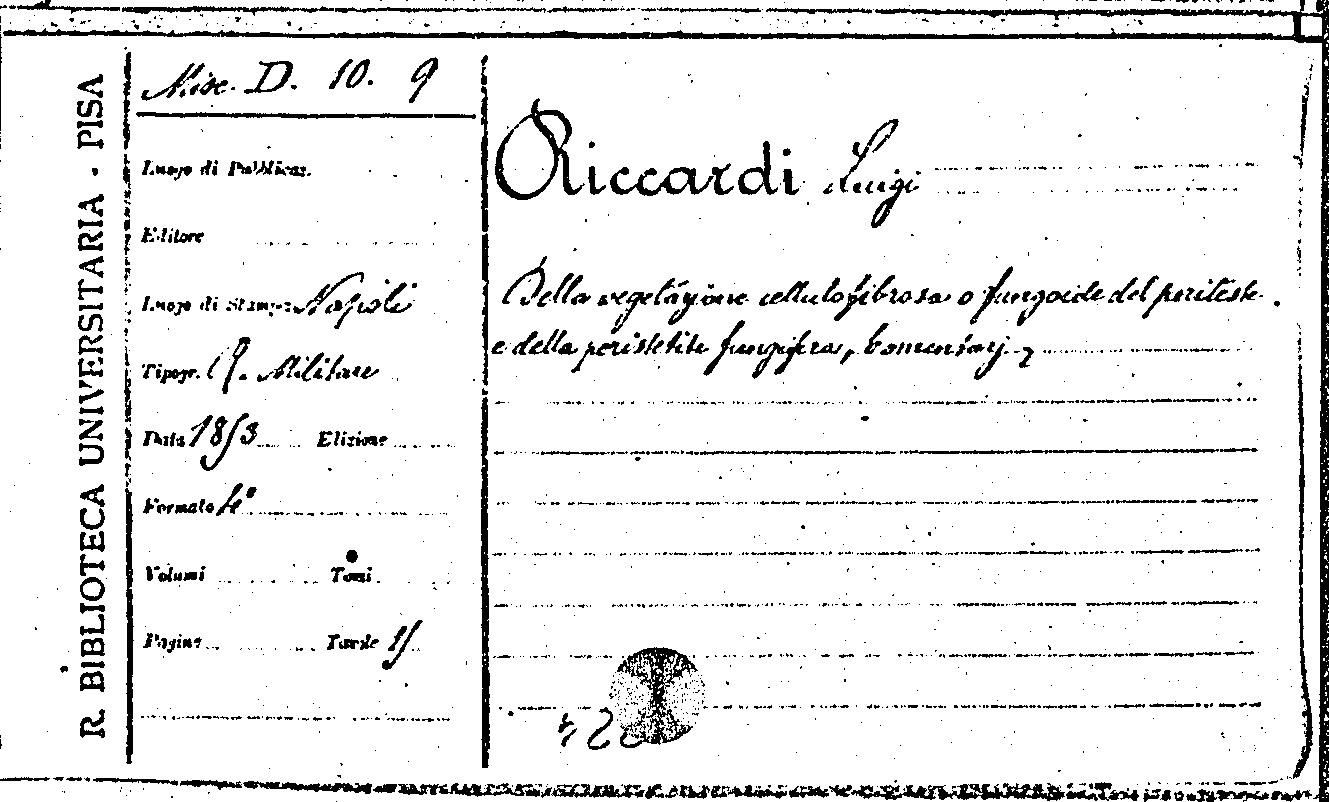 R. BIBLIOTECA UNIVERSITARIA - PISA
Misc. D. 10. 9
Luogo di Pubblicaz.
Editore
Luogo di Stampa Napoli
Tipogr. Militare
Data 1853 Edizione
Formato 4°
Volumi Tomi
Pagine Tavole
Riccardi Luigi
Della vegetazione cellulofibrosa o fungoide del peritesте
e della peristetite fungifera, Comentarj